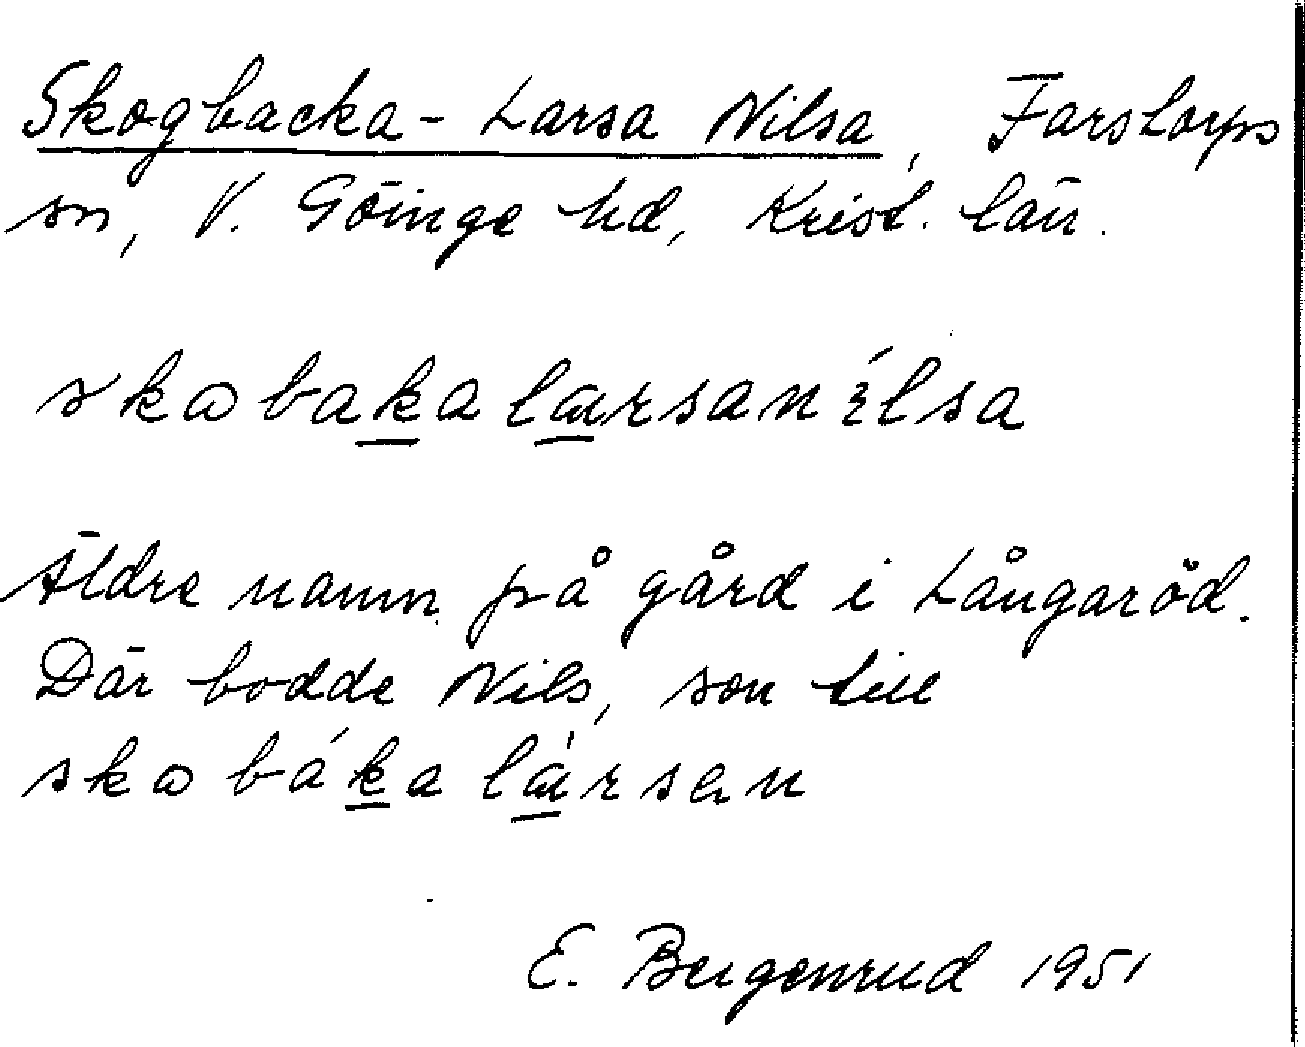 Skogbacka-Larsa Nilsa, Farstorps
sn, V. Göinge hd, Krist. län.
skωbaka lαrsanílsa
Äldre namn på gård i Långaröd.
Där bodde Nils, son till
skωbáka lαrsen
E. Bergenrud 1951